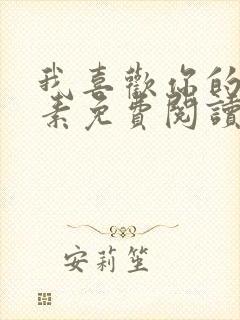 我喜歡你的
素免費閱讀
安莉笙